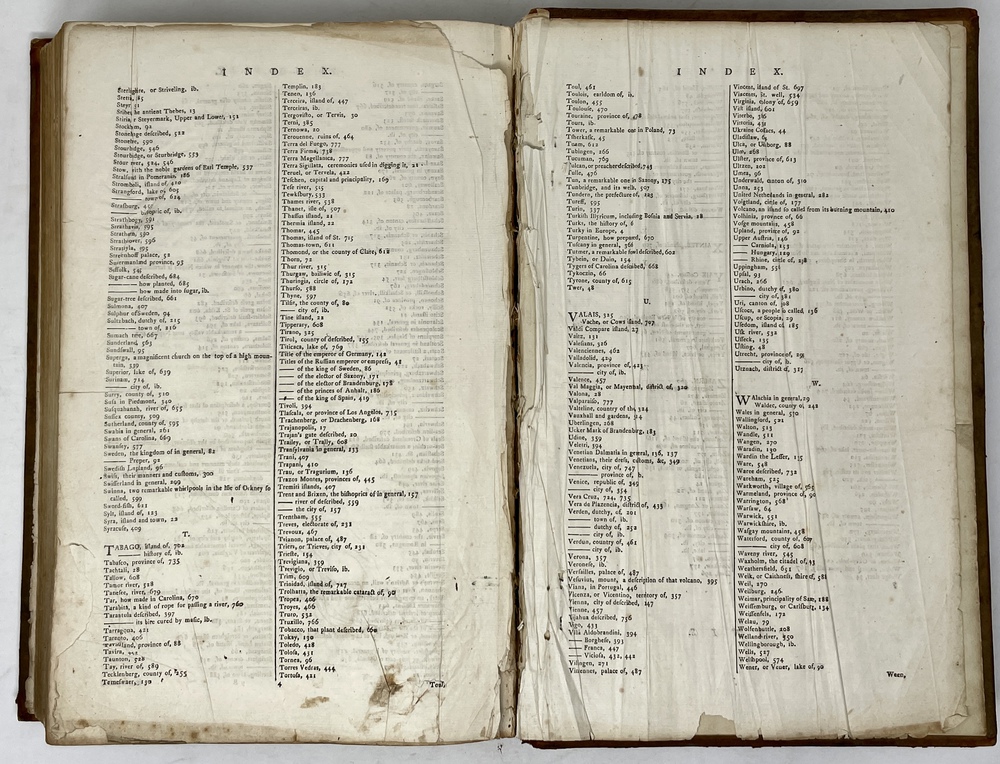 I N D E X.
or Striveling, ib.
Stetin, 85
Steyr,
antient Thebes, 13
Stiria, or Steyermark, Upper and Lower, 151
Stockholm, 92
Stonehenge described, 522
Stonebre, 590
Stourbridge, 546
Stourbridge, or Sturbridge, 553
Stour river, 524, 546
Stow, with the noble gardens of Earl Temple, 537
Stralsund in Pomerania, 186
Stromboli, island of, 410
Strangford, lake of, 605
——— town of, 614
Strasburg,
ib.
Strathbogy, 591
Strathavin, 595
Strathern, 590
Strathnaver, 596
Strastyla, 595
Streltshoff palace, 52
Sudermanland province, 93
Suffolk, 545
Sugar-cane described, 684
——— how planted, 685
——— how made into sugar, ib.
Sugar-tree described, 661
Sulmona, 407
Sulphur of Sweden, 94
Sultzbach, dutchy of, 215
——— town of, 216
Sumach tree, 667
Sunderland, 563
Sundswall, 95
Superga, a magnificent church on the top of a high moun-
tain, 339
Superior, lake of, 639
Surinam, 714
——— city of, ib.
Surry, county of, 510
Susa in Piedmont, 340
Susquahanah, river of, 655
Sussex county, 509
Sutherland, county of, 595
Swabia in general, 261
Swans of Carolina, 669
Swansey, 577
Sweden, the kingdom of in general, 82
——— Proper, 92
Swedish Lapland, 96
Swiss, their manners and customs, 300
Swisserland in general, 299
Swinna, two remarkable whirlpools in the Isle of Orkney so
called, 599
Sword-fish, 611
Sylt, island of, 123
Syra, island and town, 22
Syracuse, 409
T.
TABAGO, island of, 702
——— history of, ib.
Tabasco, province of, 735
Tachtali, 28
Tallow, 608
Tamar river, 528
Tanisee, river, 679
Tar, how made in Carolina, 670
Tarabita, a kind of rope for passing a river, 760
Tarantula described, 397
——— its bite cured by music, ib.
Tarragona, 421
Tarento, 406
Tavastland, province of, 88
Tavira,
Taunton, 528
Tay, river of, 589
Tecklenberg, county of, 255
Temeswaer, 130
Templin, 183
Tenen, 136
Terceira, island of, 447
Terceiras, ib.
Tergovisto, or Tervis, 30
Terni, 385
Ternowa, 20
Terouenne, ruins of, 464
Terra del Fuego, 777
Terra Firma, 738
Terra Magellanica, 777
Terra Sigillata, ceremonies used in digging it, 21
Teruel, or Tervela, 422
Teschen, capital and principality, 169
Tese river, 515
Tewksbury, 533
Thames river, 538
Thanet, isle of, 507
Thassus island, 21
Thermia island, 22
Thomar, 445
Thomas, island of St. 715
Thomas-town, 611
Thomond, or the county of Clare, 612
Thorn, 72
Thur river, 315
Thurgaw, bailiwic of, 315
Thuringia, circle of, 172
Thurso, 588
Thyne, 597
Tilsie, the county of, 80
——— city of, ib.
Tine island, 22
Tipperary, 608
Tirano, 325
Tirol, county of described, 155
Titicaca, lake of, 769
Title of the emperor of Germany, 142
Titles of the Russian emperor or emperess, 48
——— of the king of Sweden, 86
——— of the elector of Saxony, 171
——— of the elector of Brandenburg, 178
——— of the princes of Anhalt, 186
——— of the king of Spain, 419
Tivoli, 394
Tlascala, or province of Los Angelos, 735
Trachenberg, or Drachenberg, 168
Trajanopolis, 17
Trajan's gate described, 20
Trailey, or Trally, 608
Transylvania in general, 133
Trani, 407
Trapani, 410
Trau, or Tragurium, 136
Trazos Montes, provinces of, 445
Tremiti islands, 407
Trent and Brixen, the bishoprics of in general, 157
——— river of described, 539
——— the city of, 157
Trentham, 555
Treves, electorate of, 231
Trevoux, 467
Trianon, palace of, 487
Triers, or Trieves, city of, 231
Trieste, 154
Trevigiana, 359
Trevigio, or Treviso, ib.
Trim, 609
Trinidad, island of, 727
Trolhatta, the remarkable cataract of, 90
Tropea, 406
Troyes, 466
Truro, 532
Truxillo, 766
Tobacco, that plant described, 660
Tokay, 130
Toledo, 428
Tolosa, 431
Tornea, 96
Torres Vedras, 444
Tortosa, 421
4
Toul,
I N D E X.
Toul, 462
Toulois, earldom of, ib.
Toulon, 455
Toulouse, 470
Touraine, province of, 478
Tours, ib.
Tower, a remarkable one in Poland, 73
Tsherkask, 45
Tuam, 612
Tubingen, 266
Tucuman, 769
Tulcan, or preacher described, 745
Tulle, 476
Tun, a remarkable one in Saxony, 175
Tunbridge, and its wells, 507
Tundern, the prefecture of, 123
Tureff, 595
Turin, 337
Turkish Illyricum, including Bosnia and Servia, 28
Turks, the history of, 6
Turky in Europe, 4
Turpentine, how prepared, 670
Tuscany in general, 368
Tutner, a remarkable fowl described, 602
Tybein, or Duin, 154
Tygers of Carolina described, 668
Tykoczin, 66
Tyrone, county of, 615
Twer, 48
U.
VALAIS, 325
Vache, or Cows island, 707
Valdi Compare island, 23
Valez, 131
Valesians, 326
Valenciennes, 462
Valladolid, 429
Valencia, province of, 423
——— city of, ib.
Valence, 457
Val Maggia, or Mayenthal, district of, 320
Valona, 28
Valparaiso, 777
Valteline, county of the, 324
Vauxhall and gardens, 514
Uberlingen, 268
Ucker Mark of Brandenburg, 183
Udine, 359
Veletri, 394
Venetian Dalmatia in general, 136, 137
Venetians, their dress, customs, &c, 349
Venezuela, city of, 747
——— province of, ib.
Venice, republic of, 345
——— city of, 354
Vera Cruz, 724, 735
Vera de Plazencia, district of, 433
Verden, dutchy, of, 201
——— town of, ib.
——— dutchy of, 252
——— city of, ib.
Verdun, county of, 461
——— city of, ib.
Verona, 357
Veronese, ib.
Versailles, palace of, 487
Vesuvius, mount, a description of that volcano, 395
Viana, in Portugal, 446
Vicenza, or Vicentino, territory of, 357
Vienna, city of described, 147
Vienne, 457
Vijahua described, 756
Vigo, 433
Villa Aldobrandini, 394
——— Borghese, 393
——— Franca, 447
——— Viciosa, 432, 442
Vilsingen, 271
Vincennes, palace of, 487
Vincent, island of St. 697
Vincent, St. well, 534
Virginia, colony of, 659
Vist island, 601
Viterbo, 386
Vittoria, 431
Ukraine Cossacs, 44
Uladislaw, 65
Ulca, or Ulaborg, 88
Ulm, 268
Ulster, province of, 613
Ultzen, 202
Umea, 96
Underwald, canton of, 310
Unna, 253
United Netherlands in general, 282
Voigtland, circle of, 177
Volcano, an island so called from its burning mountain, 410
Volhinia, province of, 66
Vosge mountains, 458
Upland, province of, 92
Upper Austria, 146
——— Carniola, 153
——— Hungary, 129
——— Rhine, circle of, 238
Uppingham, 551
Upsal, 93
Urach, 266
Urbino, dutchy of, 380
——— city of, 381
Uri, canton of, 308
Uscocs, a people so called, 136
Uscup, or Scopia, 29
Usedom, island of, 185
Usk river, 532
Usseck, 135
Usting, 48
Utrecht, province of, 291
——— city of, ib.
Utznach, district of, 317
W.
WAlachia in general, 29
Waldec, county of, 242
Wales in general, 570
Wallingford, 521
Walton, 513
Wandle, 511
Wangen, 270
Waradin, 130
Wardin the Lesser, 135
Ware, 548
Waree described, 732
Wareham, 525
Warkworth, village of, 565
Warmeland, province of, 90
Warrington, 568
Warsaw, 64
Warwick, 551
Warwickshire, ib.
Wasgay mountains, 458
Waterford, county of, 607
——— city of, 608
Waveny river, 545
Waxholm, the citadel of, 93
Weathersfield, 651
Weik, or Caithness, shire of, 581
Weil, 270
Weilburg, 246
Weimar, principality of Saxe, 188
Weissemburg, or Carlsburg, 134
Weissenfels, 172
Welau, 79
Wolfenbuttle, 208
Welland river, 550
Wellingborough, ib.
Wells, 527
Welshpool, 574
Wener, or Veuer, lake of, 90
Ween,